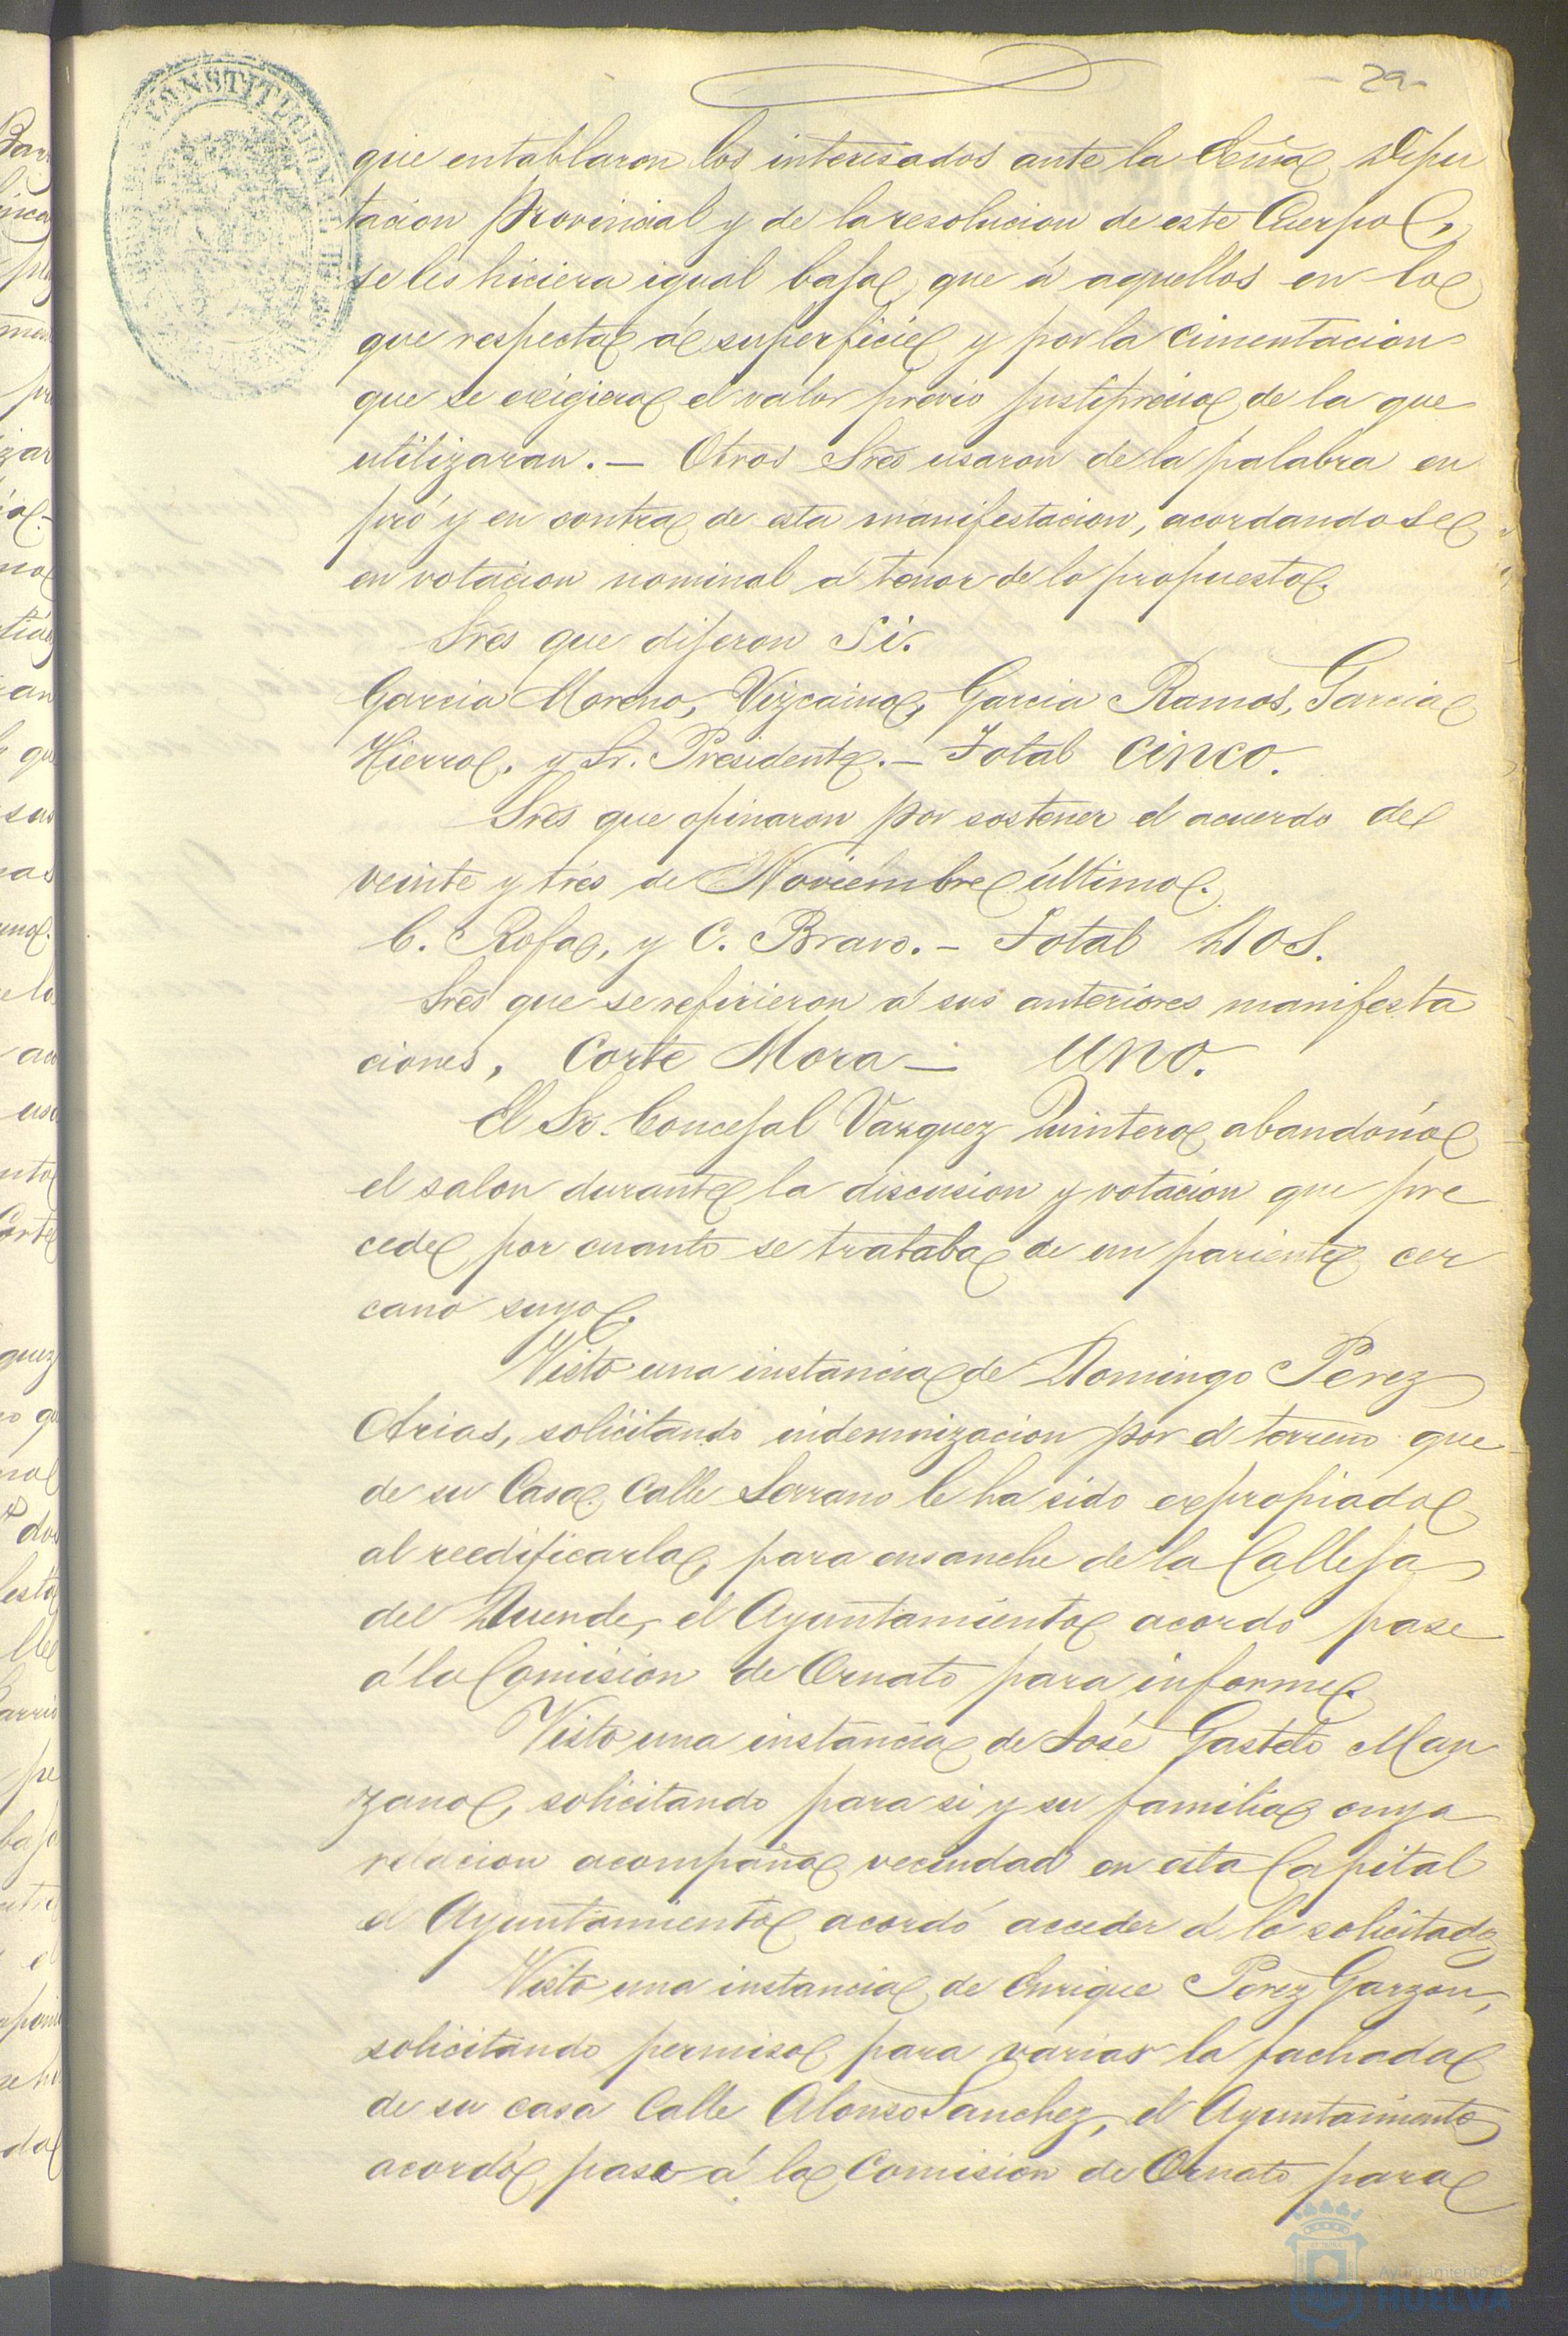 -29-
que entablaron los interesados ante la Exma Dipu
tacion Provincial y de la resolucion de este Cuerpo,
se les hiciera igual baja que á aquellos en lo
que respecta á superficie y por la cimentacion
que se exigiera el valor previo justiprecio de la que
utilizaran.— Otros Sres usaron de la palabra en
pró y en contra de esta manifestacion, acordandose
en votacion nominal á tenor de lo propuesto.
Sres que dijeron Si.
Garcia Moreno, Vizcaino, Garcia Ramos, Garcia
Hierro, y Sr. Presidente.— Total CINCO.
Sres que opinaron por sostener el acuerdo de
veinte y tres de Noviembre último.
C. Rofa, y C. Bravo.— Total DOS.
Sres que se refirieron á sus anteriores manifesta
ciones, Corte Mora — UNO.
El Sr. Concejal Vazquez Quintero abandonó
el salon durante la discusion y votacion que pre
cede por cuanto se trataba de un pariente cer
cano suyo.
Visto una instancia de Domingo Perez
Arias, solicitando indemnizacion por el terreno que
de su Casa Calle Serrano le ha sido expropiado
al reedificarla, para ensanche de la Calleja
del Duende, el Ayuntamiento acordo pase
á la Comision de Ornato para informe.
Visto una instancia de José Gastelo Man
zano, solicitando para si y su familia cuya
relacion acompaña vecindad en esta Capital
el Ayuntamiento acordó acceder á lo solicitado
Visto una instancia de Enrique Perez Garzon,
solicitando permiso para variar la fachada
de su casa Calle Alonso Sanchez, el Ayuntamiento
acordó pase á la Comision de Ornato para
CONSTITUCIONAL DE
Ayuntamiento de
HUELVA